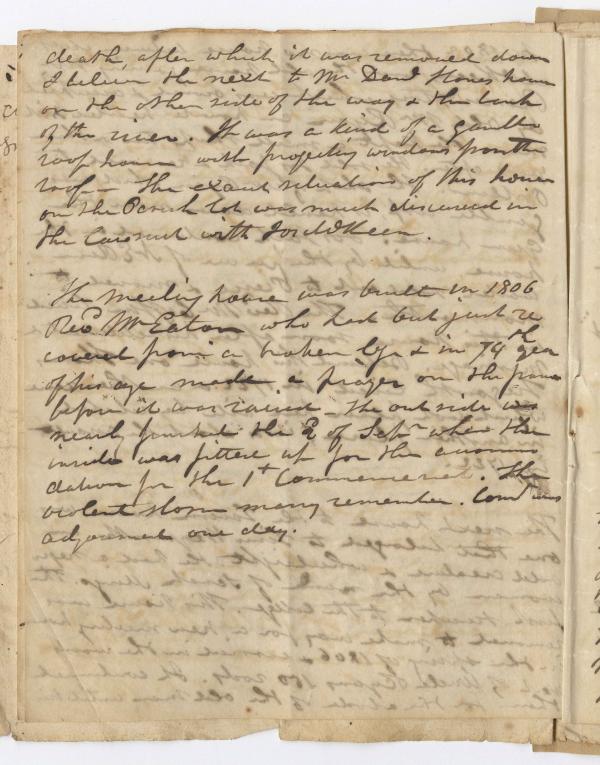 death, after which it was removed down
I believe the next to Mr Danl Stones house
on the other side of the way & the bank
of the river. It was a kind of a
roof house with projecting windows from the
roof— The exact situation of this house
on the Parish Lot was much discussed in
the Law suit with
The meeting house was built in 1806
Revd Mr Eaton who had but just re
covered from a broken leg & in 74th year
of his age made a prayer on the frame
before it was raised— The out side was
nearly finished the 2 of Sepr when the
inside was fitted up for the accomo
dation for the 1t Commencement. The
violent storm many remember. Comt was
adjourned one day.